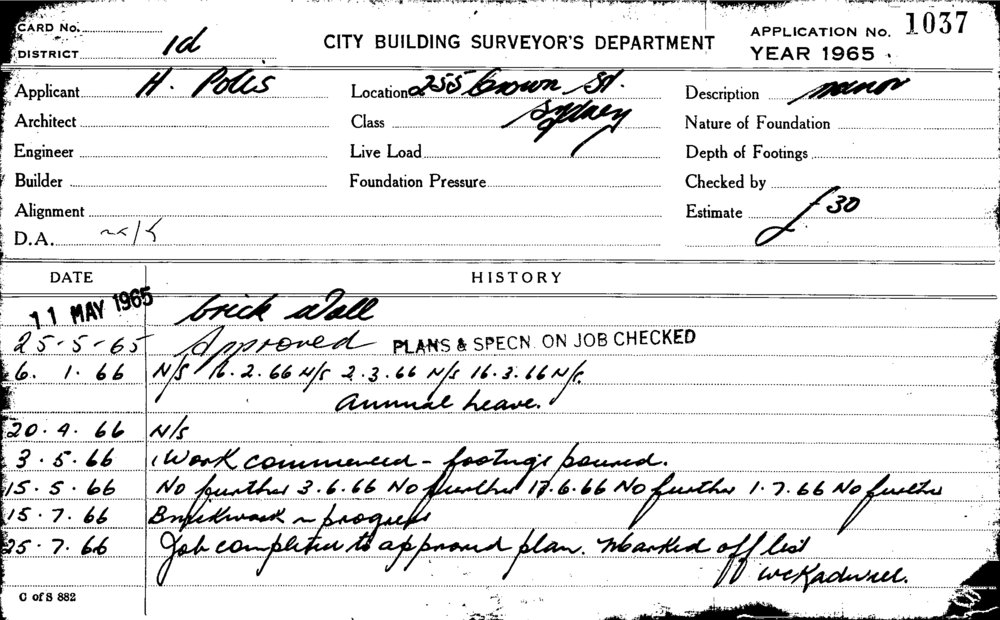 CARD No.
DISTRICT 1d
CITY BUILDING SURVEYOR'S DEPARTMENT
APPLICATION No. 1037
YEAR 1965
Applicant H. Polis Location 255 Crown St. Description minor
Architect Class Sydney Nature of Foundation
Engineer Live Load Depth of Footings
Builder Foundation Pressure Checked by
Alignment Estimate £30
D.A.
DATE HISTORY
11 MAY 1965 brick wall
25-5-65 Approved PLANS & SPECN. ON JOB CHECKED
6. 1. 66 N/S 16.2.66 N/S 2.3.66 N/S 16.3.66 N/S.
Annual Leave.
20.4.66 N/S
3.5.66 Work commenced - footings poured.
15.5.66 No further 3.6.66 No further 17.6.66 No further 1.7.66 No further
15.7.66 Brickwork in progress
25.7.66 Job completed to approved plan. Marked off list
C of S 882